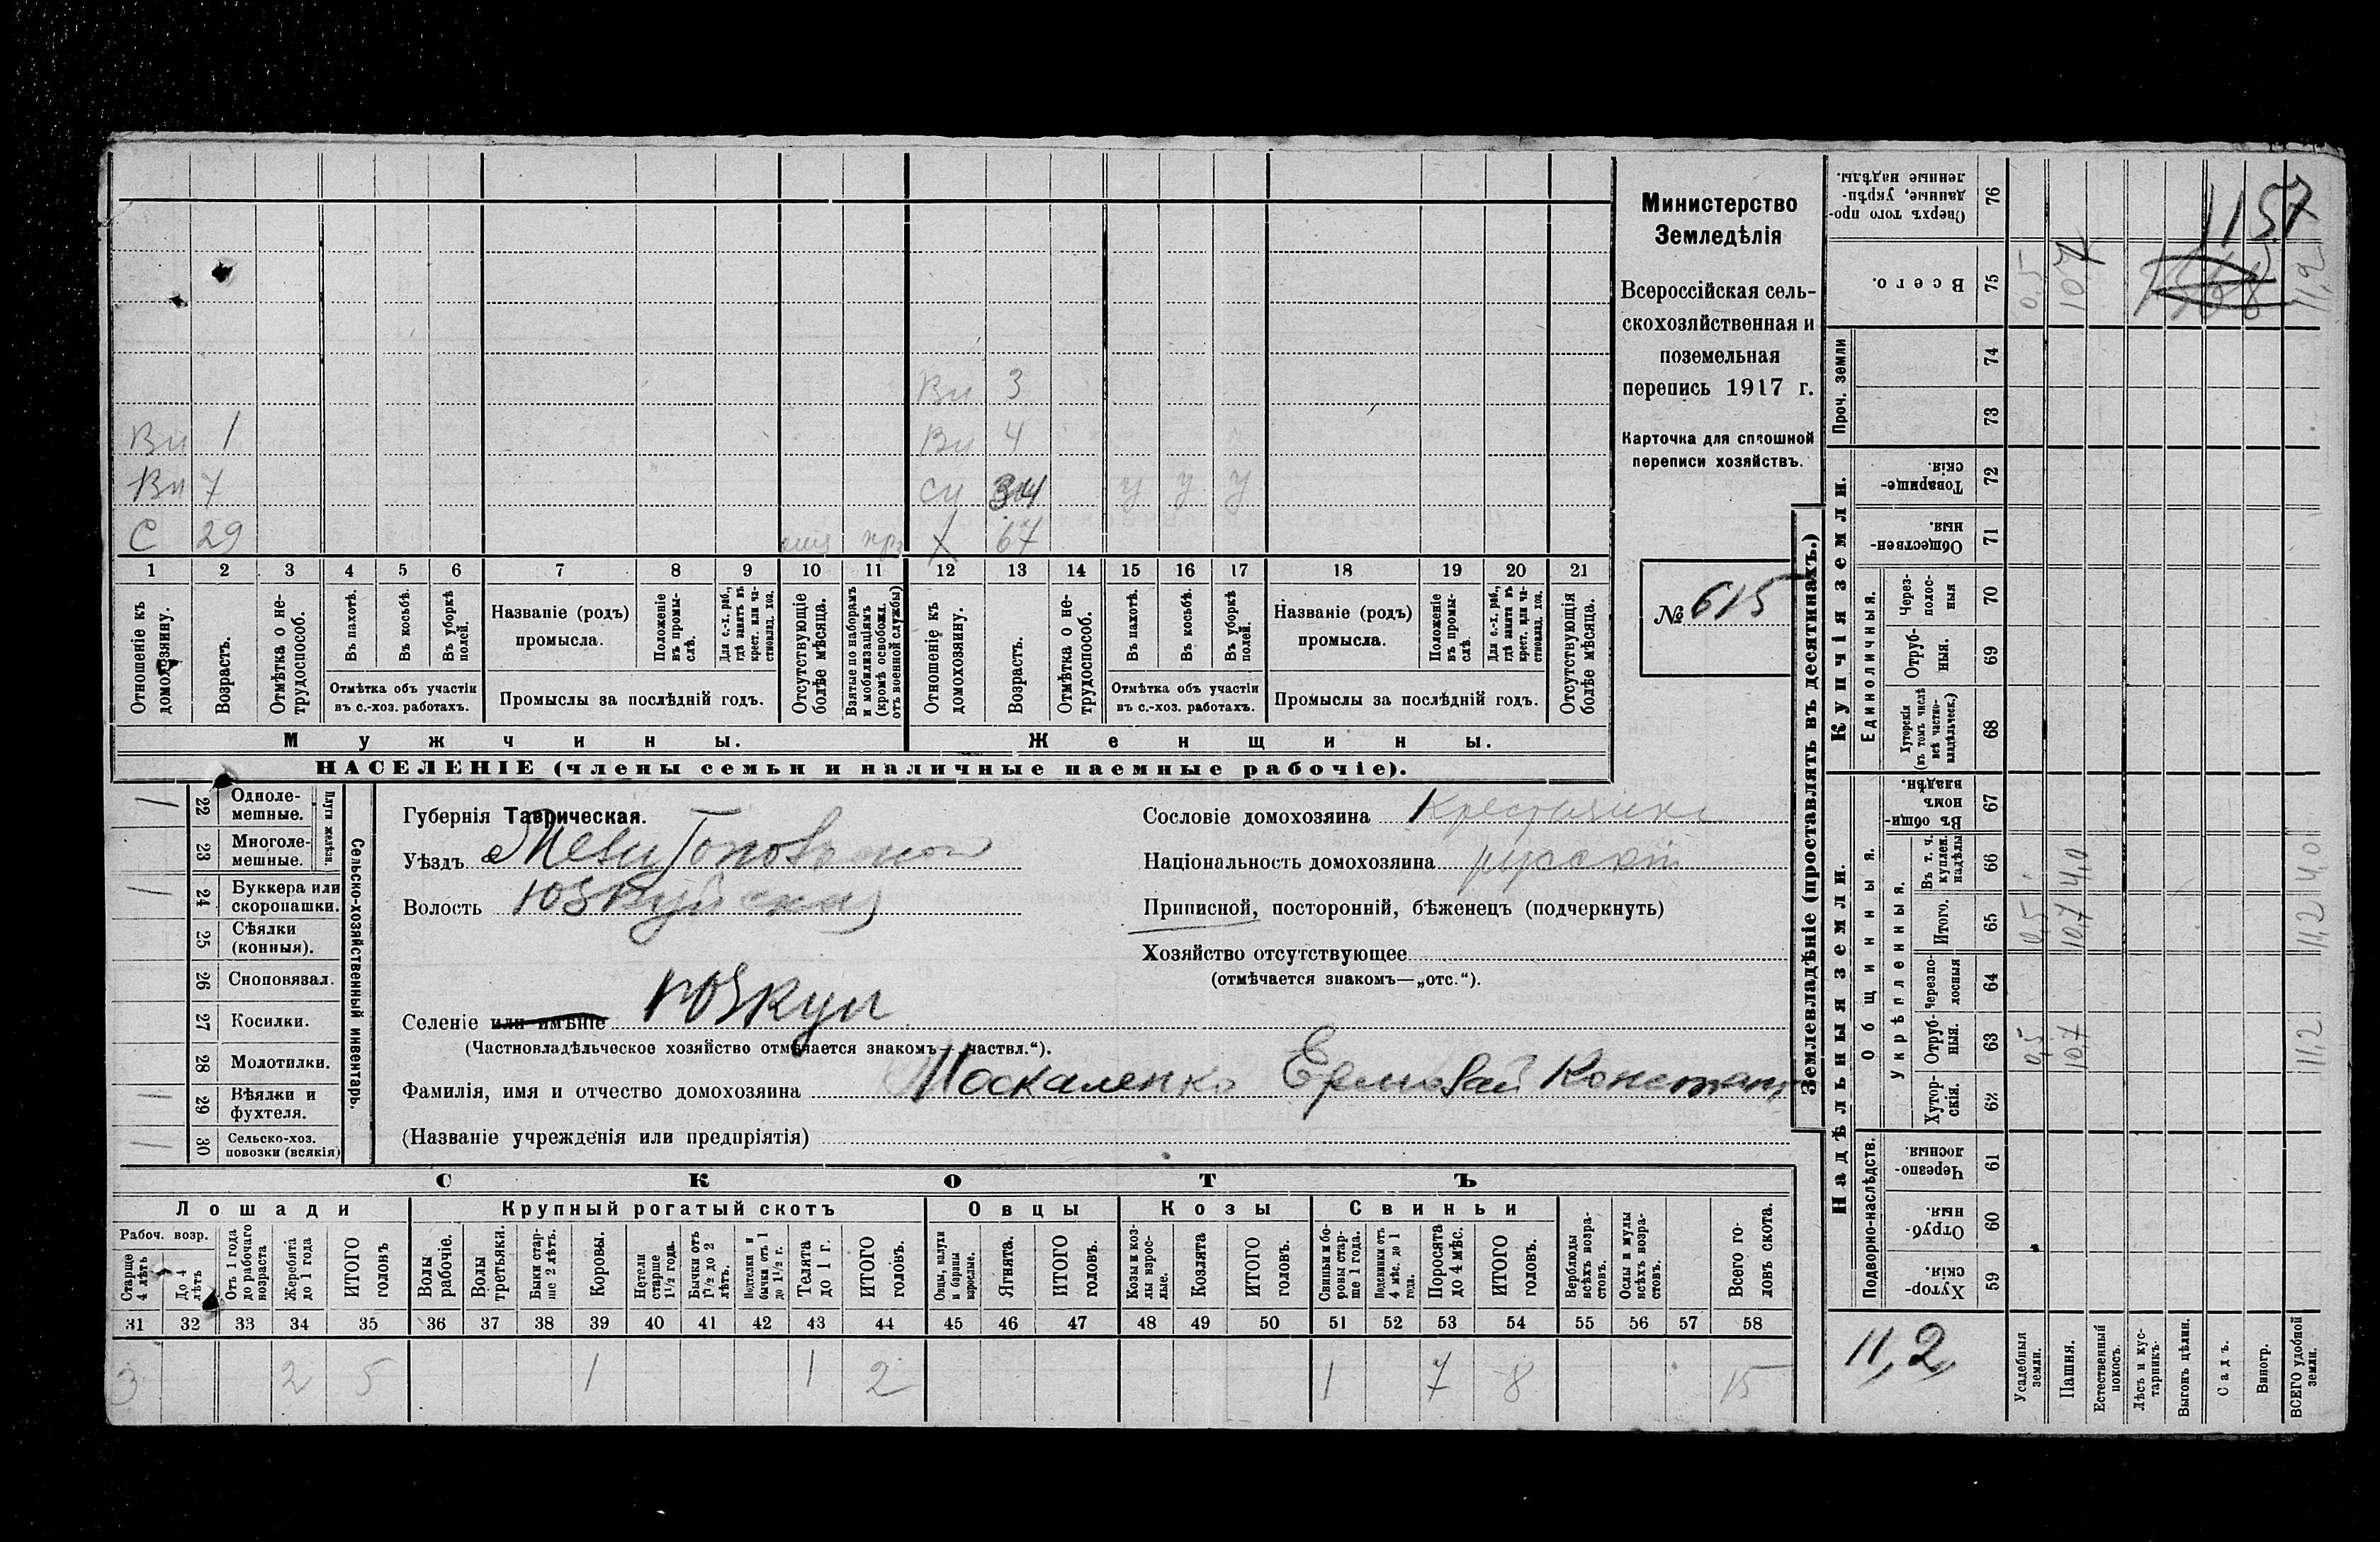 Министерство
Земледѣлія
Всероссійская сель-
скохозяйственная и
поземельная
перепись 1917 г.
Карточка для сплошной
переписи хозяйствъ.
№ 615
Ви 3
Ви 1 Ви 4
Ви 7 си 34 у у у
С 29 Х 67
1 2 3 4 5 6 7 8 9 10 11 12 13 14 15 16 17 18 19 20 21
Отношеніе къ домохозяину.
Возрастъ.
Отмѣтка о не-трудоспособ.
Въ пахотѣ.
Въ косьбѣ.
Въ уборкѣ полей.
Отмѣтка объ участіи
въ с.-хоз. работахъ.
Названіе (родъ)
промысла.
Положеніе въ промы-слѣ.
Для с.-х. раб., гдѣ занятъ въ крест. или ча-стновлад. хоз.
Промыслы за послѣдній годъ.
Отсутствующіе болѣе мѣсяца.
Взятые по наборамъ и мобилизаціямъ (кромѣ освобожд. отъ военной службы)
Отношеніе къ домохозяину.
Возрастъ.
Отмѣтка о не-трудоспособ.
Въ пахотѣ.
Въ косьбѣ.
Въ уборкѣ полей.
Отмѣтка объ участіи
въ с.-хоз. работахъ.
Названіе (родъ)
промысла.
Положеніе въ промы-слѣ.
Для с.-х. раб., гдѣ занята въ крест. или ча-стновлад. хоз.
Промыслы за послѣдній годъ.
Отсутствующія болѣе мѣсяца.
Мужчины. Женщины.
НАСЕЛЕНІЕ (члены семьи и наличные наемные рабочіе).
Сельско-хозяйственный инвентарь.
Плуги желѣзн.
1 22 Одноле-мешные.
23 Многоле-мешные.
1 24 Буккера или скоропашки.
25 Сѣялки (конныя).
26 Сноповязал.
27 Косилки.
28 Молотилки.
1 29 Вѣялки и фухтеля.
1 30 Сельско-хоз. повозки (всякія)
Губернія Таврическая.
Уѣздъ Мелитопольской
Волость Юзкуйская
Селеніе или имѣніе Юзкуи
(Частновладѣльческое хозяйство отмѣчается знакомъ—„частвл.“).
Фамилія, имя и отчество домохозяина Москаленко Ермолай Констант
(Названіе учрежденія или предпріятія)
Сословіе домохозяина Крестьянинъ
Національность домохозяина русскій
Приписной, посторонній, бѣженецъ (подчеркнуть)
Хозяйство отсутствующее
(отмѣчается знакомъ—„отс.“).
СКОТЪ
Лошади Крупный рогатый скотъ Овцы Козы Свиньи
Рабоч. возр.
Старше 4 лѣтъ
До 4 лѣтъ
Отъ 1 года до рабочаго возраста
Жеребята до 1 года
ИТОГО головъ
Волы рабочіе.
Волы третьяки.
Быки стар-ше 2 лѣтъ.
Коровы.
Нетели старше 1½ года.
Бычки отъ 1½ до 2 лѣтъ.
Подтелки и бычки отъ 1 до 1½ г.
Телята до 1 г.
ИТОГО головъ.
Овцы, валухи и бараны взрослые.
Ягнята.
ИТОГО головъ.
Козы и коз-лы взрос-лые.
Козлята
ИТОГО головъ.
Свиньи и бо-ровы стар-ше 1 года.
Подсвинки отъ 4 мѣс. до 1 года.
Поросята до 4 мѣс.
ИТОГО головъ.
Верблюды всѣхъ возра-стовъ.
Ослы и мулы всѣхъ возра-стовъ.
Всего го-ловъ скота.
31 32 33 34 35 36 37 38 39 40 41 42 43 44 45 46 47 48 49 50 51 52 53 54 55 56 57 58
3 2 5 1 1 2 1 7 8 15
Землевладѣніе (проставлять въ десятинахъ.)
Надѣльныя земли. Купчія земли. Проч. земли
Подворно-наслѣдств.
Общинныя.
Укрѣпленныя.
Единоличныя.
Хутор-скія. 59
Отруб-ныя. 60
Черезпо-лосныя. 61
Хутор-скія. 62
Отруб-ныя. 63 0,5 10,7 11,2
Черезпо-лосныя 64
Итого. 65 0,5 10,7 11,2
Въ т. ч. куплен. надѣлы 66 4,0 4,0
Въ общин-номъ владѣн. 67
Хуторскія (въ томъ числѣ всѣ частно-владѣльческ.) 68
Отруб-ныя. 69
Через-полос-ныя 70
Обществен-ныя. 71
Товарище-скія. 72
73
74
Всего. 75 0,5 10,7 11,2
Сверхъ того про-данные, укрѣп-ленные надѣлы. 76
1157
11,2
Усадебныя земли.
Пашня.
Естественный покосъ.
Лѣсъ и кус-тарникъ.
Выгонъ цѣлин.
Садъ.
Виногр.
ВСЕГО удобной земли.